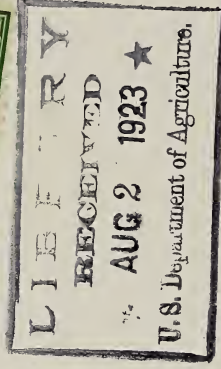 LIBRARY
RECEIVED
AUG 2 1923 ★
U. S. Department of Agriculture.